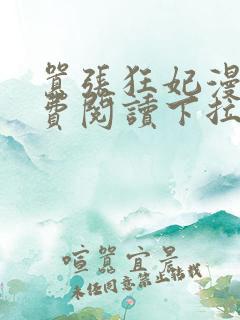 囂張狂妃漫
費閱讀下拉
喧囂宜景
未任同意禁止轉載